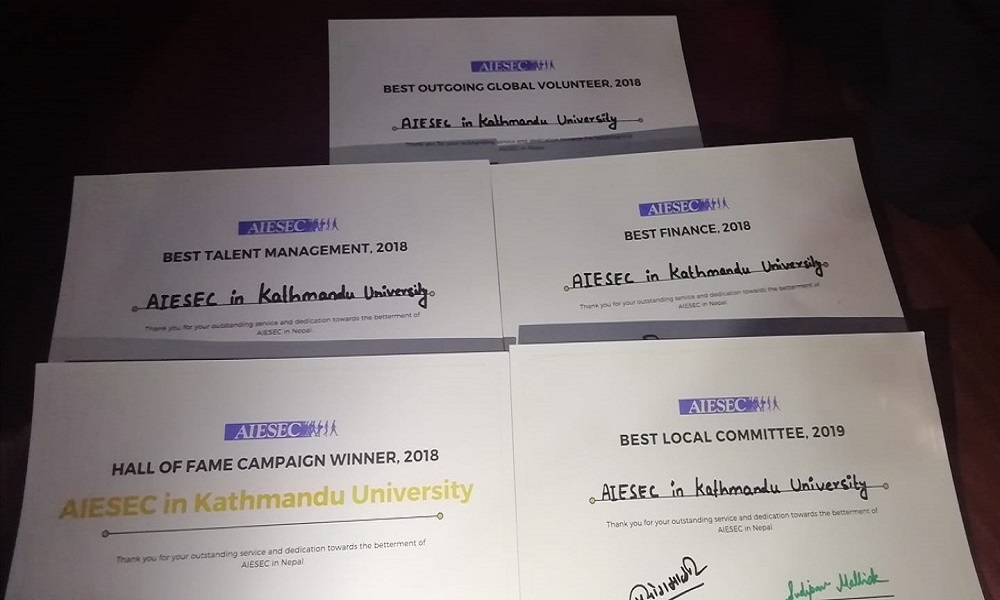 AIESEC
BEST OUTGOING GLOBAL VOLUNTEER, 2018
AIESEC in Kathmandu University
Thank you for your outstanding service and dedication towards the betterment of
AIESEC in Nepal.
AIESEC
BEST TALENT MANAGEMENT, 2018
AIESEC in Kathmandu University
Thank you for your outstanding service and dedication towards the betterment of
AIESEC in Nepal.
AIESEC
BEST FINANCE, 2018
AIESEC in Kathmandu University
Thank you for your outstanding service and dedication towards the betterment of
AIESEC in Nepal.
AIESEC
HALL OF FAME CAMPAIGN WINNER, 2018
AIESEC in Kathmandu University
Thank you for your outstanding service and dedication towards the betterment of
AIESEC in Nepal.
AIESEC
BEST LOCAL COMMITTEE, 2019
AIESEC in Kathmandu University
Thank you for your outstanding service and dedication towards the betterment of
AIESEC in Nepal.